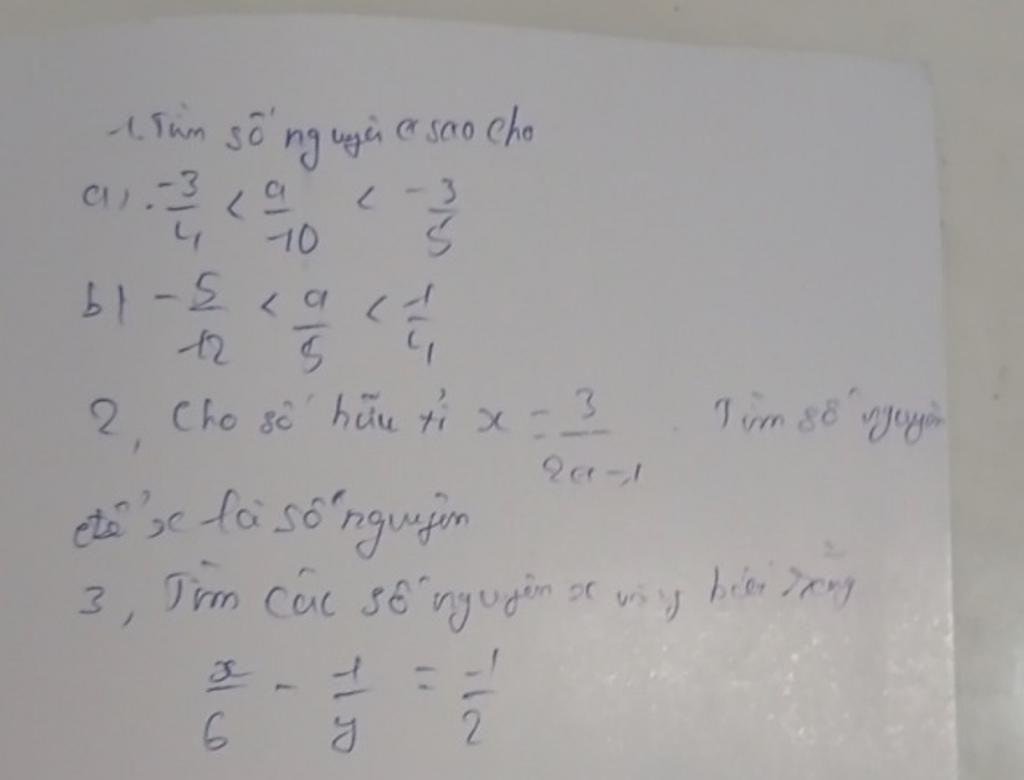 1. Tìm số nguyên a sao cho
a) -3/4 < a/10 < -3/5
b) -5/12 < a/5 < 1/4
2, Cho số hữu tỉ x = 3/2a-1. Tìm số nguyên
để x là số nguyên
3, Tìm các số nguyên x và y biết rằng
x/6 - 1/y = 1/2